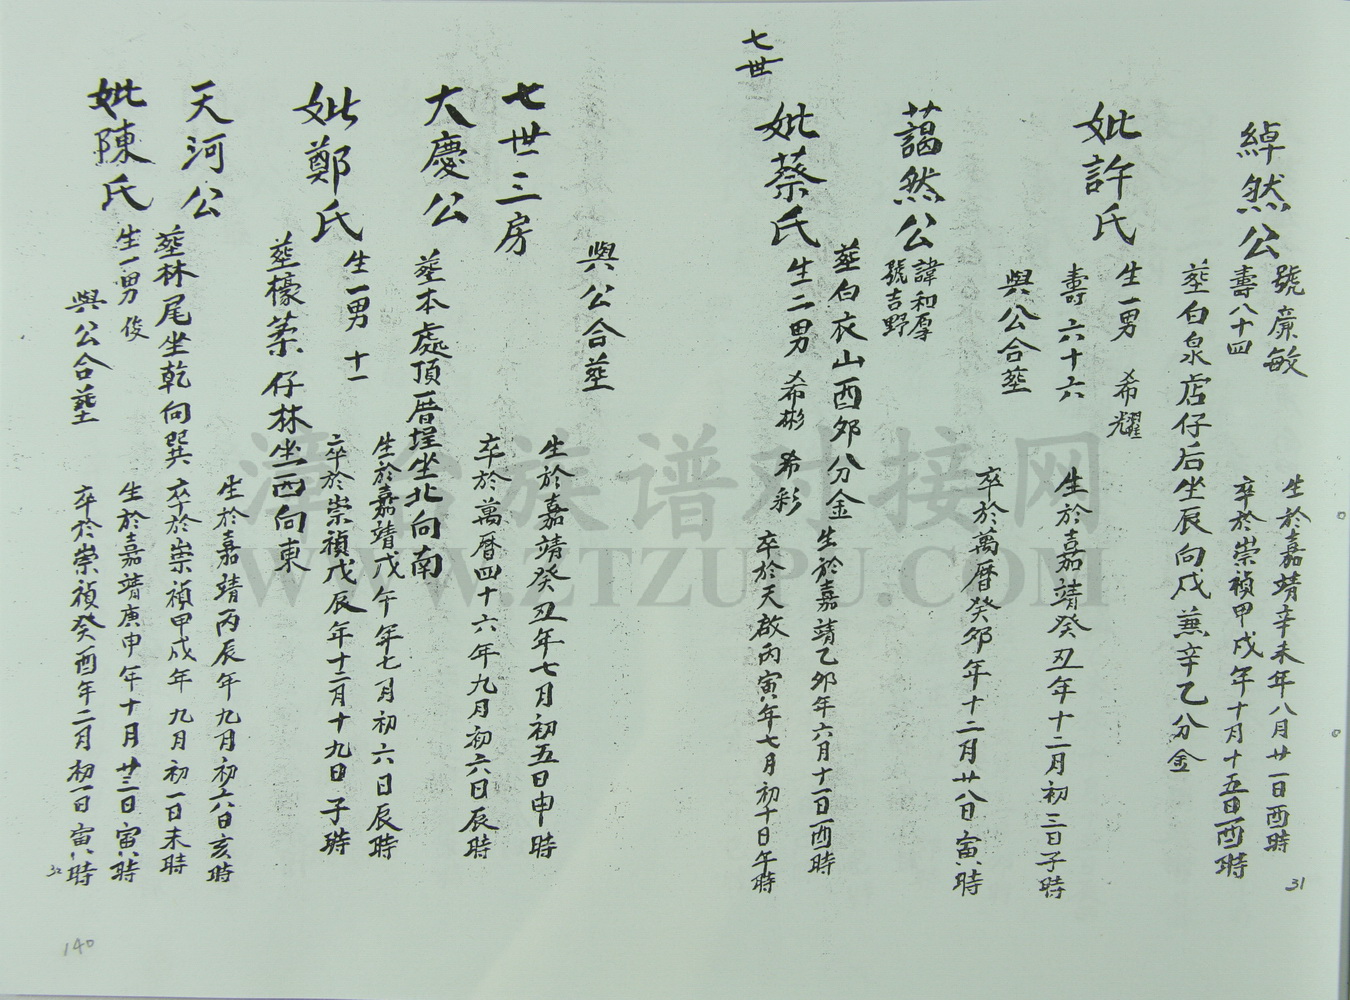 綽然公
號廉敏
壽八十四
生於嘉靖辛未年八月廿一日酉時
卒於崇禎甲戌年十月十五日酉時
塟白泉店仔后坐辰向戌兼辛乙分金
妣許氏
生一男 希耀
壽六十六
生於嘉靖癸丑年十二月初三日子時
與公合塟
卒於萬曆癸卯年十二月廿八日寅時
藹然公
諱和厚
號吉野
塟白衣山酉卯分金
生於嘉靖乙卯年六月十一日酉時
七世
妣蔡氏
生二男 希彬 希彩
卒於天啟丙寅年七月初十日午時
與公合塟
七世三房
生於嘉靖癸丑年七月初五日申時
卒於萬曆四十六年九月初六日辰時
大慶公
塟本處頂厝埕坐北向南
生於嘉靖戊午年七月初六日辰時
妣鄭氏
生一男 十一
卒於崇禎戊辰年十二月十九日子時
塟檺葇仔林坐西向東
天河公
生於嘉靖丙辰年九月初六日亥時
塟林尾坐乾向巽
卒於崇禎甲戌年九月初一日未時
妣陳氏
生一男 俊
生於嘉靖庚申年十月廿三日寅時
與公合塟
卒於崇禎癸酉年二月初一日寅時
31
32
140
漳台族谱对接网
WWW.ZTZUPU.COM